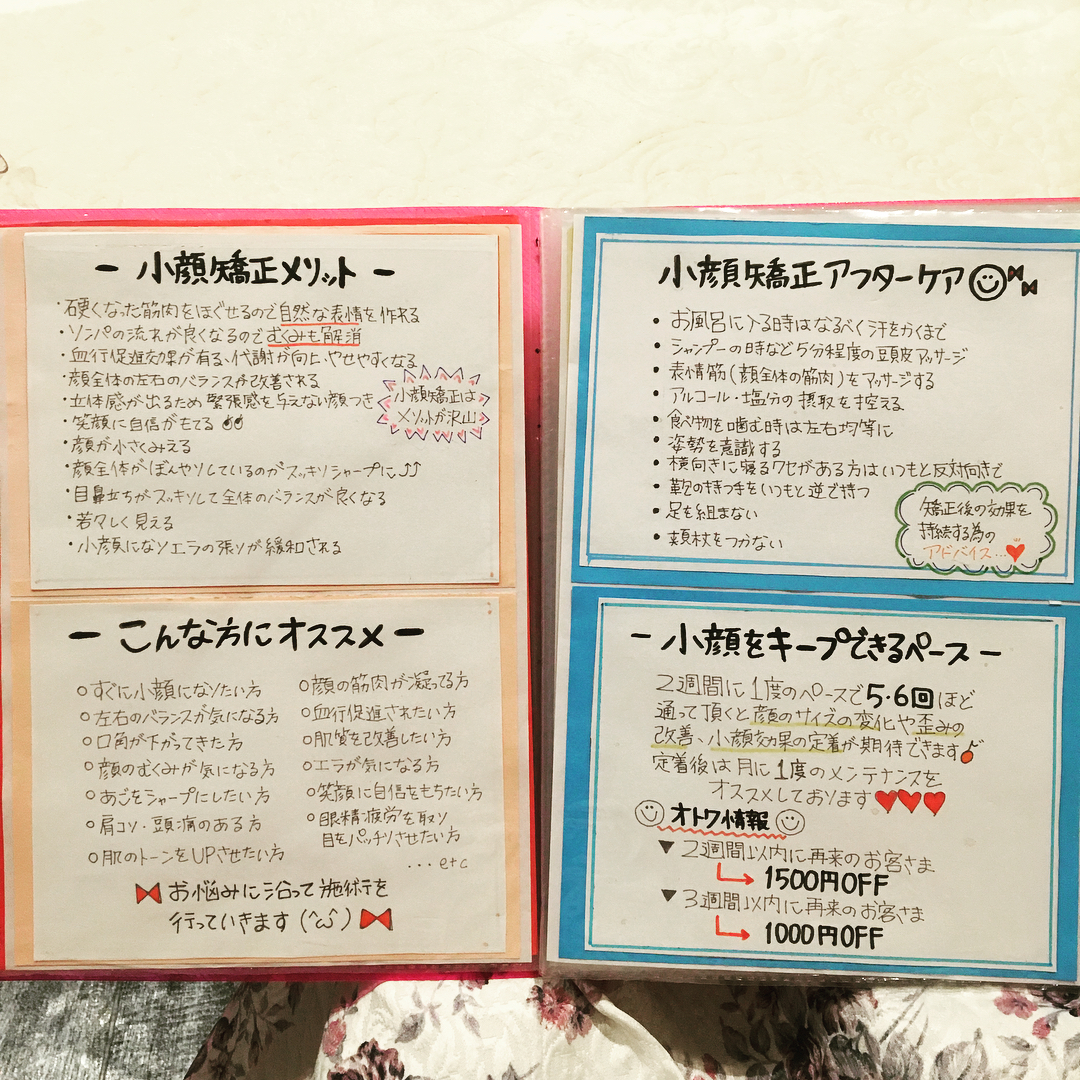 - 小顔矯正メリット -
・硬くなった筋肉をほぐせるので自然な表情を作れる
・リンパの流れが良くなるのでむくみも解消
・血行促進効果が有る、代謝が向上、やせやすくなる
・顔全体の左右のバランスが改善される
・立体感が出るため緊張感を与えない顔つき
・笑顔に自信がもてる
・顔が小さくみえる
・顔全体がぼんやりしているのがスッキリシャープに⤴⤴
・目鼻立ちがスッキリして全体のバランスが良くなる
・若々しく見える
・小顔になりエラの張りが緩和される
小顔矯正は
メリットが沢山
- こんな方にオススメ -
○すぐに小顔になりたい方
○左右のバランスが気になる方
○口角が下がってきた方
○顔のむくみが気になる方
○あごをシャープにしたい方
○肩コリ・頭痛のある方
○肌のトーンをUPさせたい方
○顔の筋肉が凝ってる方
○血行促進されたい方
○肌質を改善したい方
○エラが気になる方
○笑顔に自信をもちたい方
○眼精疲労を取り
目をパッチリさせたい方
...etc
お悩みに沿って施術を
行っていきます(^ω^)
小顔矯正アフターケア
• お風呂に入る時はなるべく汗をかくまで
• シャンプーの時など5分程度の頭皮マッサージ
• 表情筋(顔全体の筋肉)をマッサージする
• アルコール・塩分の摂取を控える
• 食べ物を噛む時は左右均等に
• 姿勢を意識する
• 横向きに寝るクセがある方はいつもと反対向きで
• 鞄の持つ手をいつもと逆で持つ
• 足を組まない
• 頬杖をつかない
矯正後の効果を
持続する為の
アドバイス…♥
- 小顔をキープできるペース -
2週間に1度のペースで5・6回ほど
通って頂くと顔のサイズの変化や歪みの
改善、小顔効果の定着が期待できます♪
定着後は月に1度のメンテナンスを
オススメしております♥♥♥
オトク情報
▼2週間以内に再来のお客さま
→1500円OFF
▼3週間以内に再来のお客さま
→1000円OFF